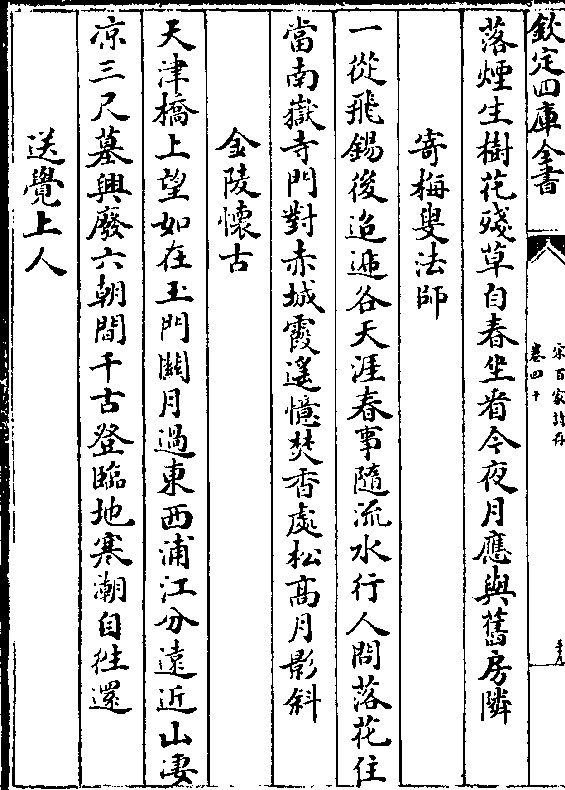 欽定四庫全書
宋百家詩存
卷四十
落煙生樹花殘草自春坐看今夜月應與舊房隣
寄梅叟法師
一從飛錫後迢遞各天涯春事隨流水行人問落花住
當南嶽寺門對赤城霞遙憶焚香處松高月影斜
金陵懷古
天津橋上望如在玉門關月過東西浦江分遠近山凄
凉三尺墓興廢六朝間千古登臨地寒潮自徃還
送覺上人